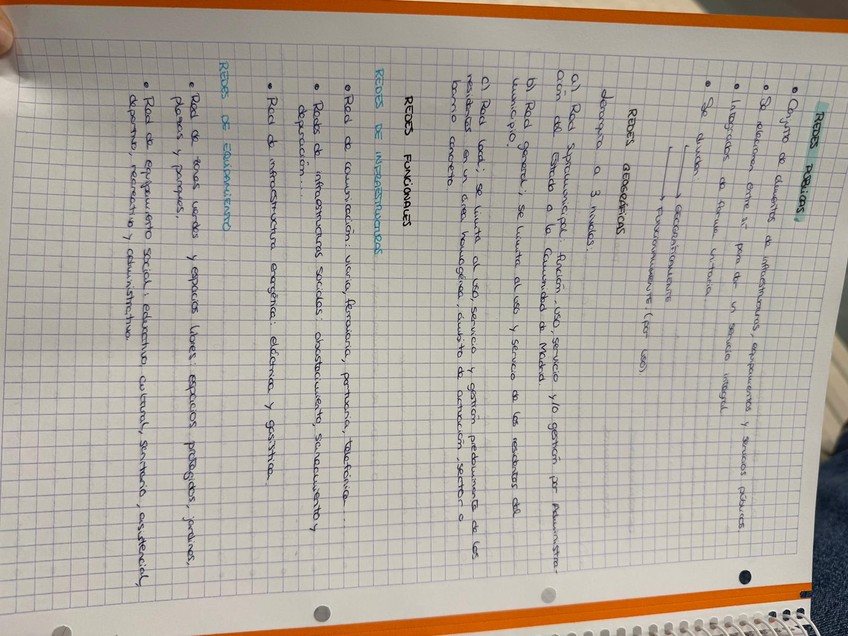 REDES PÚBLICAS,
• Conjunto de elementos de infraestructuras, equipamientos y servicios públicos.
• Se relacionan entre sí para dar un servicio integral
• Integradas de forma unitaria.
• Se dividen
→ GEOGRÁFICAMENTE
→ FUNCIONALMENTE (por uso)
REDES GEOGRÁFICAS
Jerarquía a 3 niveles:
a) Red Supramunicipal: función, uso, servicio y/o gestión por Administra-
ción del Estado o la Comunidad de Madrid
b) Red general: se limita al uso y servicio de los residentes del
municipio.
c) Red local: se limita al uso, servicio y gestión predominante de los
residentes en un área homogénea, ámbito de actuación, sector o
barrio concreto
REDES FUNCIONALES
REDES DE INFRAESTRUCTURAS
• Red de comunicación: viaria, ferroviaria, portuaria, telefónica...
• Redes de infraestructuras sociales: abastecimiento, saneamiento y
depuración...
• Red de infraestructura energética: eléctrica y gasística.
REDES DE EQUIPAMIENTO
• Red de zonas verdes y espacios libres: espacios protegidos, jardines,
plazas y parques.
• Red de equipamiento social: educativo, cultural, sanitario, asistencial,
deportivo, recreativo y administrativo